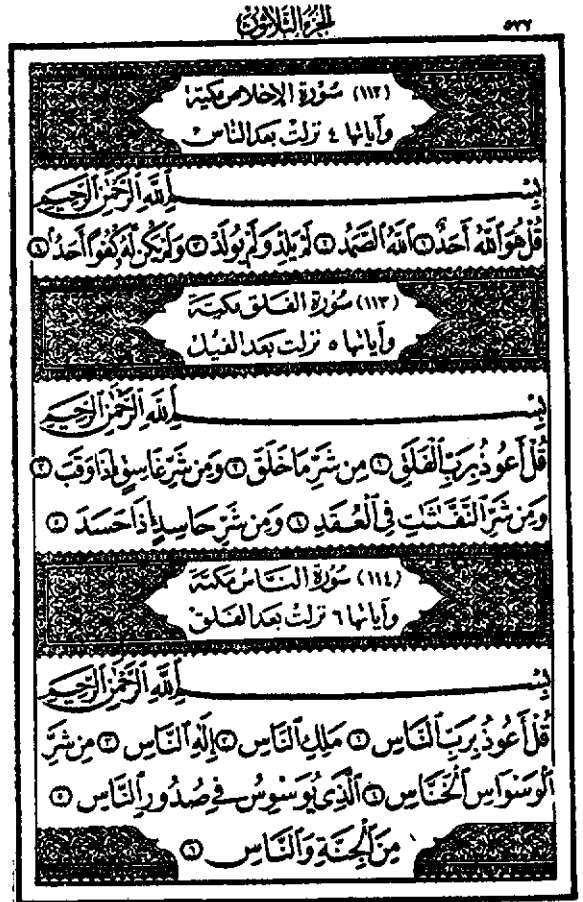 الجزء الثلاثون ٥٣٢
(١١٢) سُورَةُ الإِخْلَاصِ مَكِّيَّة
وَآيَاتُهَا ٤ نَزَلَتْ بَعْدَ النَّاس
بِسْمِ ٱللَّهِ ٱلرَّحْمَٰنِ ٱلرَّحِيمِ
قُلْ هُوَ ٱللَّهُ أَحَدٌ ١ ٱللَّهُ ٱلصَّمَدُ ٢ لَمْ يَلِدْ وَلَمْ يُولَدْ ٣ وَلَمْ يَكُن لَّهُۥ كُفُوًا أَحَدٌۢ ٤
(١١٣) سُورَةُ الْفَلَقِ مَكِّيَّة
وَآيَاتُهَا ٥ نَزَلَتْ بَعْدَ الْفِيل
بِسْمِ ٱللَّهِ ٱلرَّحْمَٰنِ ٱلرَّحِيمِ
قُلْ أَعُوذُ بِرَبِّ ٱلْفَلَقِ ١ مِن شَرِّ مَا خَلَقَ ٢ وَمِن شَرِّ غَاسِقٍ إِذَا وَقَبَ ٣
وَمِن شَرِّ ٱلنَّفَّٰثَٰتِ فِى ٱلْعُقَدِ ٤ وَمِن شَرِّ حَاسِدٍ إِذَا حَسَدَ ٥
(١١٤) سُورَةُ النَّاسِ مَكِّيَّة
وَآيَاتُهَا ٦ نَزَلَتْ بَعْدَ الْفَلَق
بِسْمِ ٱللَّهِ ٱلرَّحْمَٰنِ ٱلرَّحِيمِ
قُلْ أَعُوذُ بِرَبِّ ٱلنَّاسِ ١ مَلِكِ ٱلنَّاسِ ٢ إِلَٰهِ ٱلنَّاسِ ٣ مِن شَرِّ
ٱلْوَسْوَاسِ ٱلْخَنَّاسِ ٤ ٱلَّذِى يُوَسْوِسُ فِى صُدُورِ ٱلنَّاسِ ٥
مِنَ ٱلْجِنَّةِ وَٱلنَّاسِ ٦